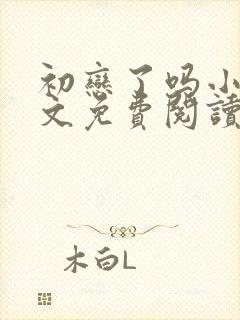 初戀了吗小
文免費閱讀
木白L